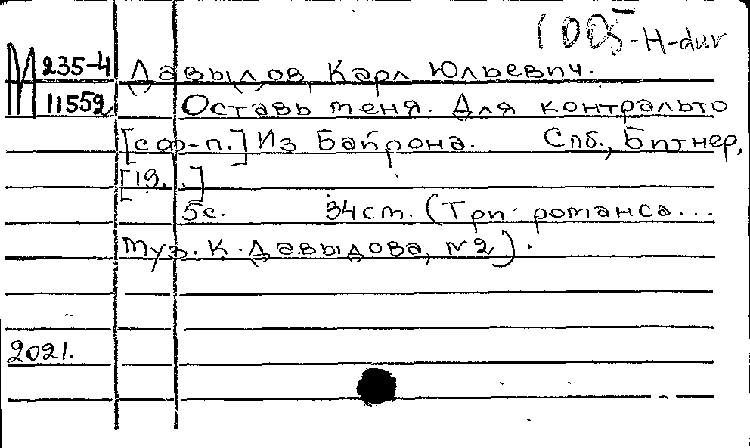 1005-H-dur
М 235-4 Давыдов, Карл Юльевич.
11552 Оставь меня. Для контральто
[с ф-п.] Из Байрона. Спб., Битнер,
[19..]
5с. 34см. (Три романса...
Муз. К. Давыдова, №2).
2021.